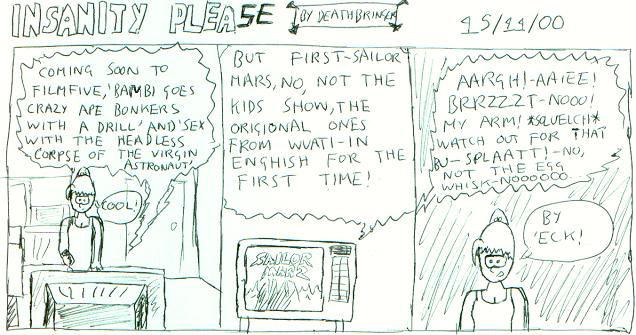 INSANITY PLEASE
BY DEATHBRINGER
15/11/00
COMING SOON TO
FILMFIVE, 'BAMBI GOES
CRAZY APE BONKERS
WITH A DRILL' AND 'SEX
WITH THE HEADLESS
CORPSE OF THE VIRGIN
ASTRONAUT'!
COOL!
BUT FIRST-SAILOR
MARS, NO, NOT THE
KIDS SHOW, THE
ORIGIONAL ONES
FROM WUATI-IN
ENGHISH FOR THE
FIRST TIME!
SAILOR
MARZ
AARGH!-AAIEE!
BRRZZZT-NOOO!
MY ARM! *SQUELCH*
WATCH OUT FOR THAT
BU-SPLAATT!-NO,
NOT THE EGG
WHISK-NOOOOOO.
BY
'ECK!